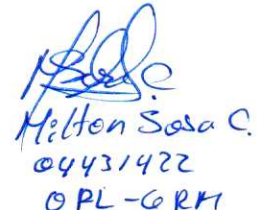 Milton Sosa C.
04431422
OPL-GRM